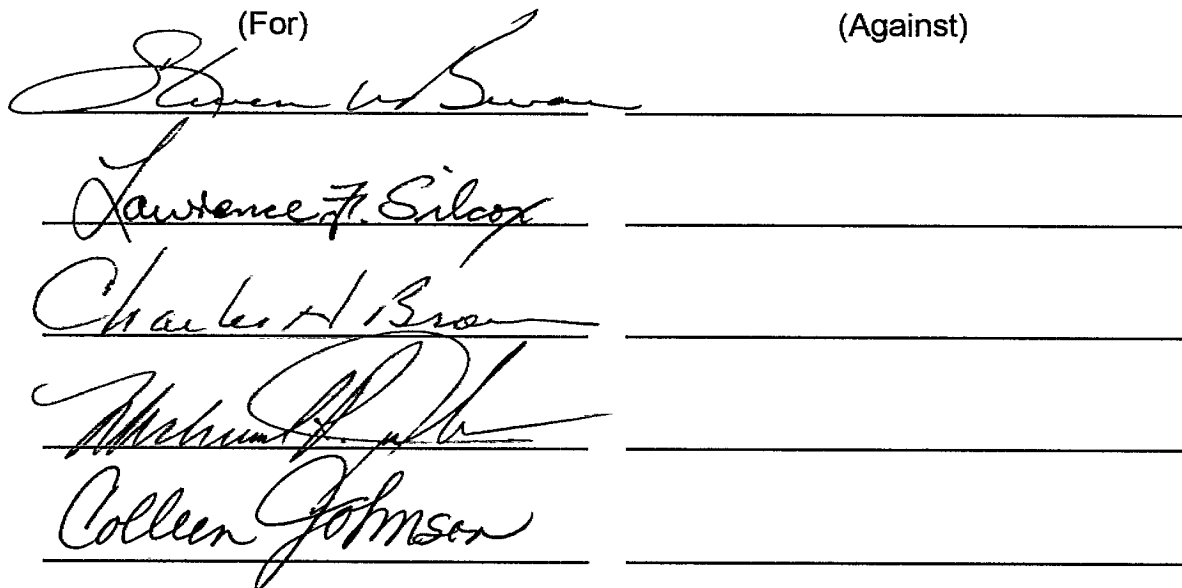 (For) (Against)
Steven W
Lawrence F. Silcox
Charles H Brown
Michael
Colleen Johnson